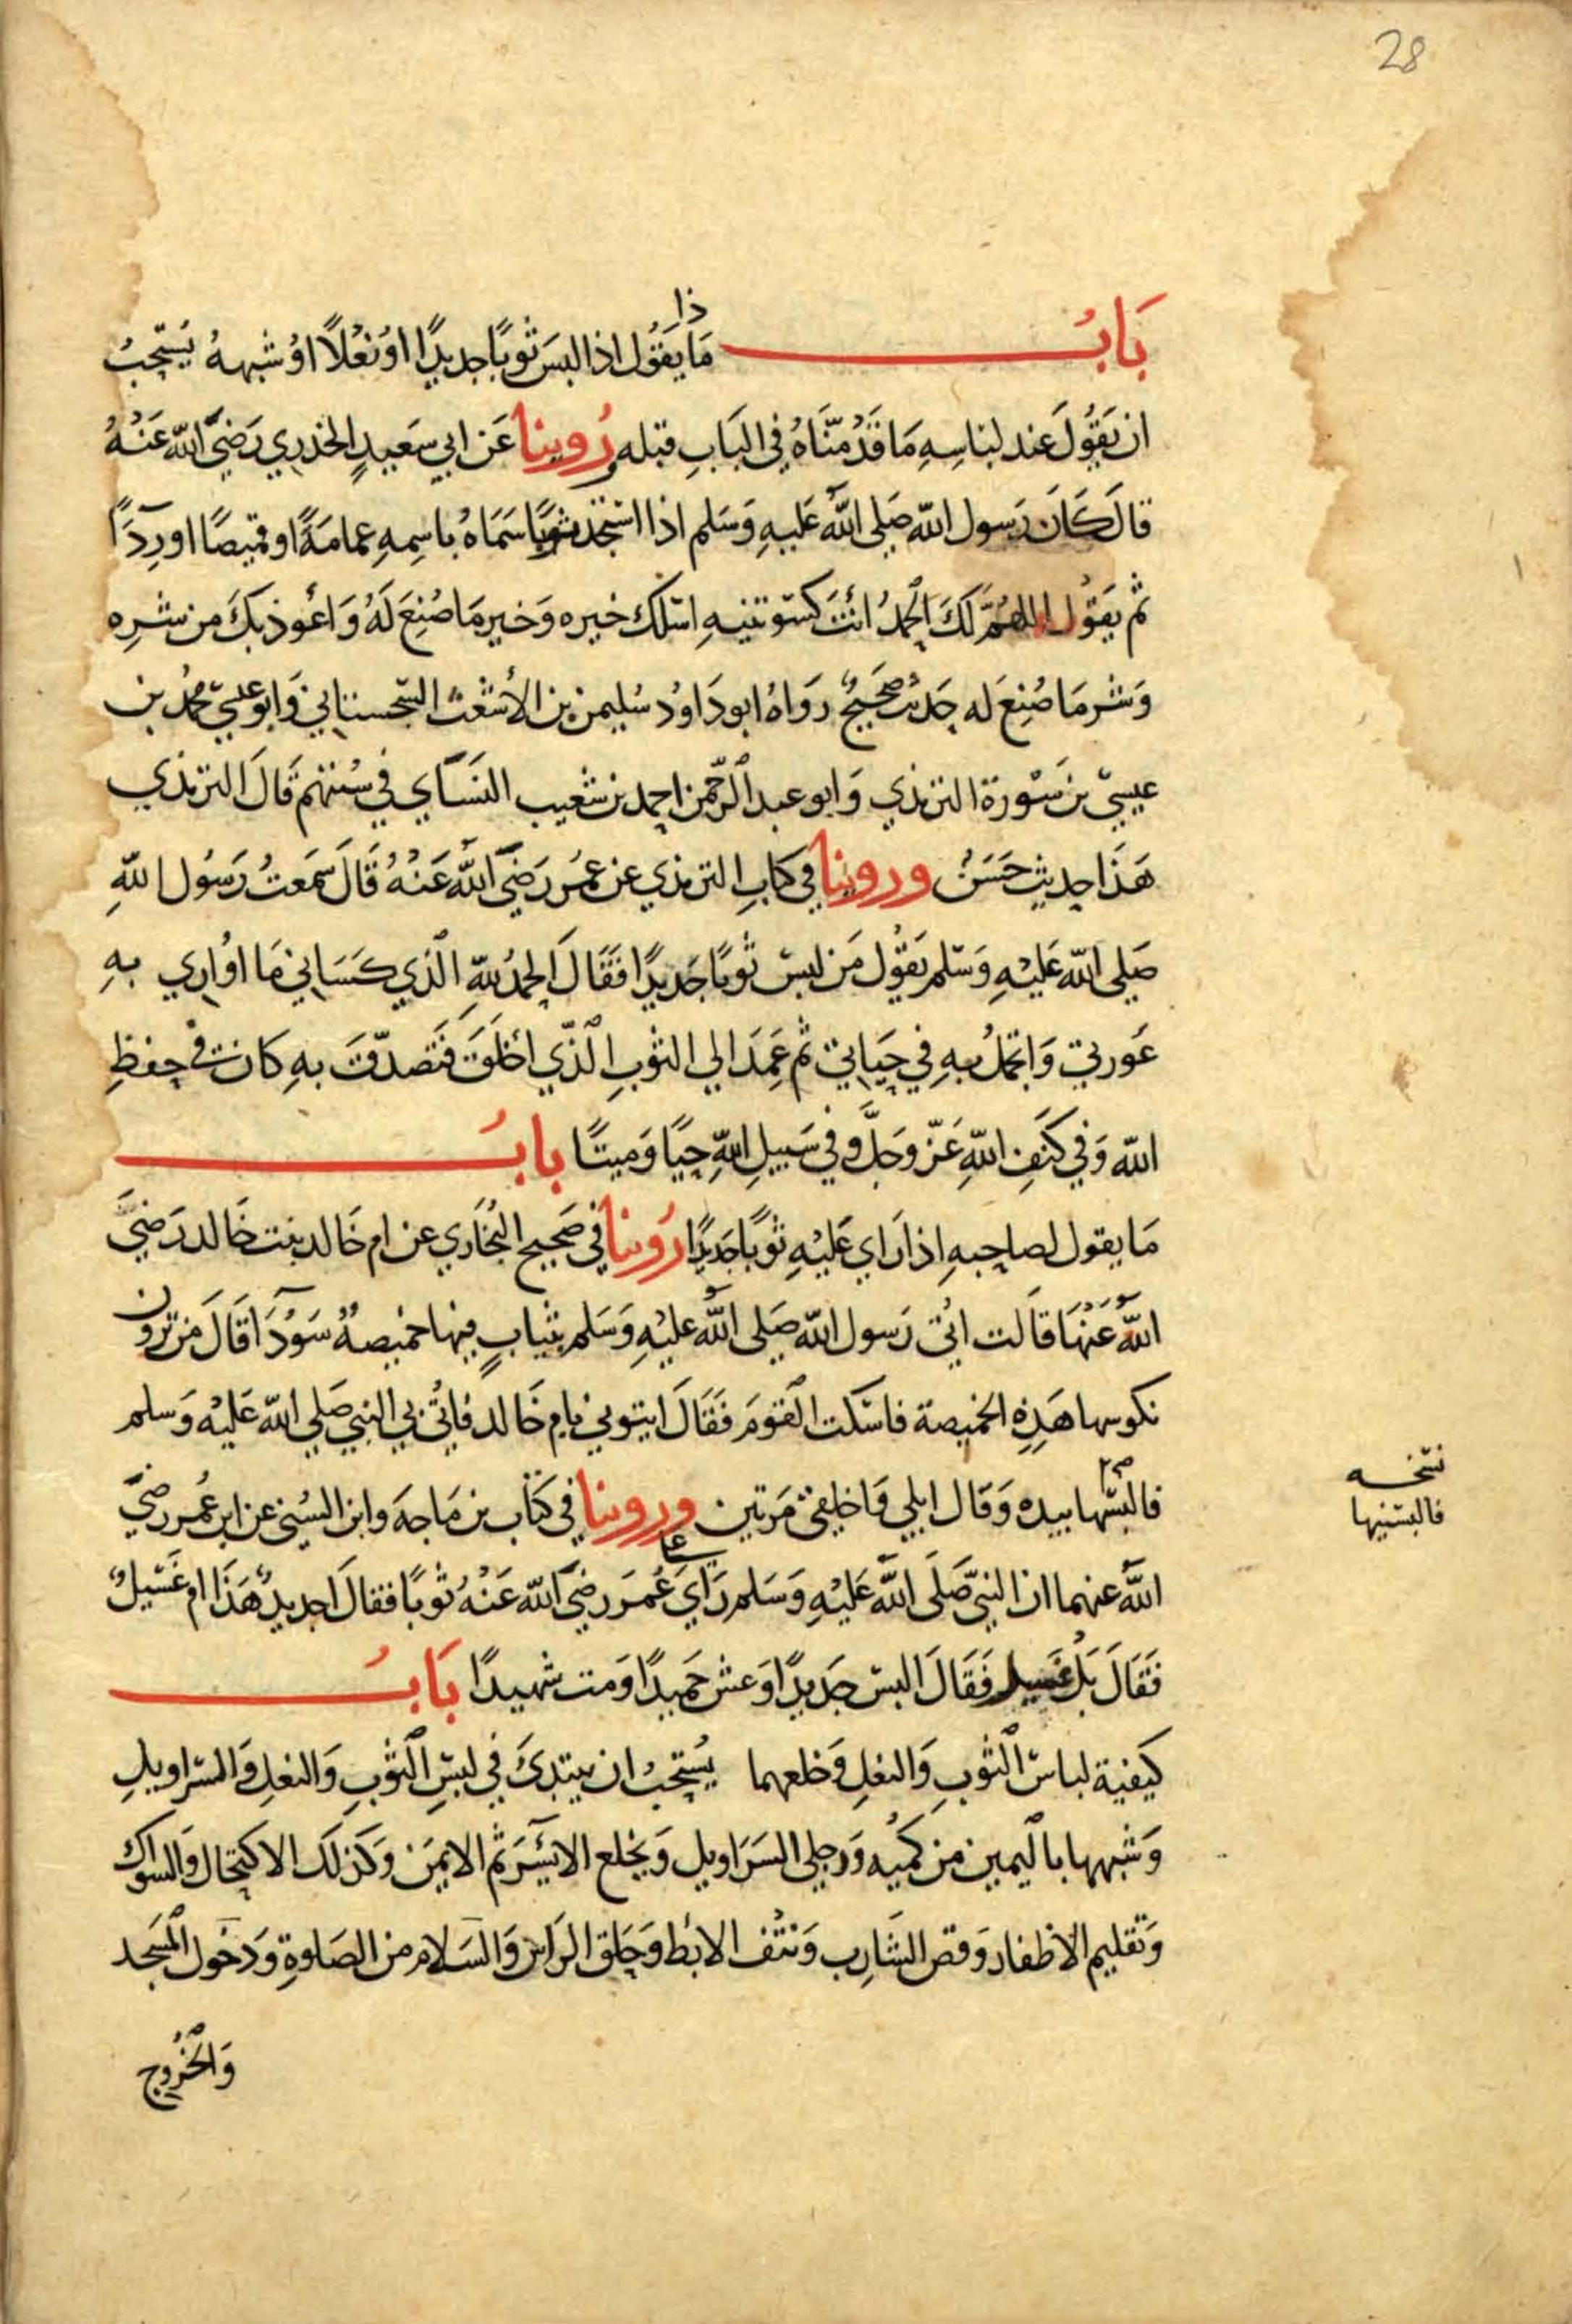 28
بَابُ مَا ذا يَقُول اذا لبسَ ثوبًا جديدًا اوْ نَعْلاً اوْ شبهه يُسْتحبُ
ان يَقُولَ عند لباسِهِ مَا قَدْمنَاهُ في البَابِ قبله رُوينا عَن ابي سَعيدٍ الخدري رَضيَ الله عَنْهُ
قالَ كَانَ رَسول الله صَلى الله عَليهِ وَسَلم اذا استجد ثوبًا سَمَاهُ باسمِهِ عمامَةً او قميصًا او رِدَآً
ثم يَقوُل اللهُمَّ لَكَ الحمدُ انْتَ كسَوتنيهِ اسْلك خيره وَخير مَا صُنِعَ لَهُ وَاعُوذ بكَ من شرِه
وَشر مَا صُنِعَ له حَديث صحَيحٌ رَوَاهُ ابو دَاوُد سُليمن بن الأشعث السِجستاني وَابو عيسَي محمدُ بن
عيسيَ بن سَوْرة الترمذي وَابو عبد الرَّحمن احمد بن شعيب النسَآي في سُننهم قَالَ الترمذي
هَذَا حديث حَسَنٌ وروينا في كتابِ الترمذي عن عمَر رَضيَ اللهُ عَنْهُ قَالَ سَمعتُ رَسُول اللهِ
صَلى الله عَليْهِ وَسَلم يَقُول مَن لبسَ ثوبًا جَديدًا فقَالَ الحمدُ للهِ الَّذي كسَاني مَا اوُاري بهِ
عَورتي وَاتجملُ بهِ في حَيَاتي ثم عَمِدَ الي الثوبِ الَّذي اخلَقَ فَتَصدَّقَ بهِ كان في حِفظِ
الله وَفي كنَفِ اللهِ عَزّ وَجَلَّ وفي سَبيلِ اللهِ حيًا وَميتًا بابُ
مَا يقول لصاحبهِ اذا رَاي عَليْهِ ثوبًا جَديدًا رَوينا في صَحيح البُخَاري عن ام خَالد بنت خَالد رَضيَ
اللهُ عَنْهَا قَالت اتيَ رَسول الله صَلى اللهُ عليْهِ وَسَلم بثيابٍ فيها خميصهٌ سَوْدَآ قَالَ مَن ترون
نكوسها هَذِهِ الخميصة فاسْكت القومَ فَقَالَ ايتوني بامِ خَالد فاتُي بي النبي صَلي الله عَليْهِ وَسلم
فالبسَها بيده وَقال ابلي وَاخلِقي مَرتين وروينا في كتَاب بن مَاجهَ وابن السُني عن ابن عُمر رضيَ
نسَخه
فالبسَنيها
اللهُ عنهما ان النبيّ صَلَى اللهُ عَليْهِ وَسَلم رَاي عَلى عُمرَ رضيَ الله عَنْهُ ثوبًا فقالَ اجديدٌ هَذَا ام غَسِيلٌ
فَقَالَ بَل غسيل فَقَالَ البسْ جَديدًا وَعش حَميدًا وَمت شهيدًا بَابُ
كيفية لباس الثوبِ وَالنعلِ وَخلعهما يُستحبُ ان يبتدئ في لبسِ الثوْبِ وَالنعلِ وَالسراويلِ
وَشبهها باليَمين مِن كميْه وَرجلي السَرَاويل وَيخلع الايسَرَ ثم الايمَن وَكذلَك الاكتحَال وَالسواك
وَتقليم الاظفار وَقص الشَارِب وَنتْف الابْط وَحَلق الرَاس وَالسَلام من الصَلوةِ وَدخول المسَجد
وَالخُروج